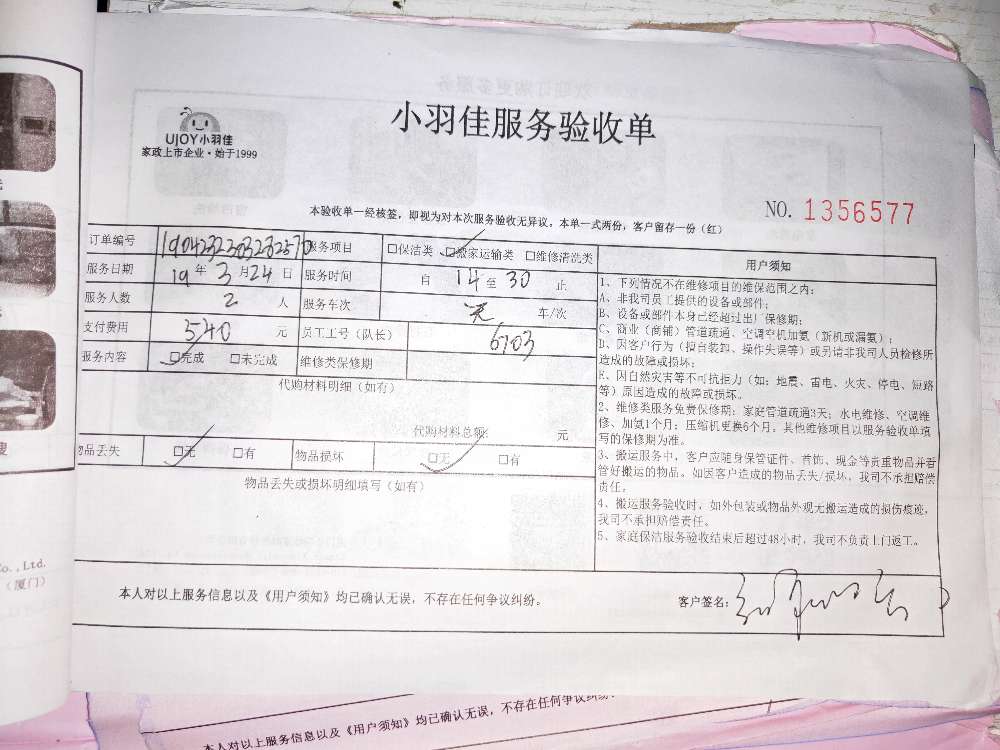 小羽佳服务验收单
UJOY小羽佳
家政上市企业·始于1999
本验收单一经核签，即视为对本次服务验收无异议。本单一式两份，客户留存一份（红）
NO. 1356577
订单编号 服务项目 □保洁类 □搬家运输类 □维修清洗类
服务日期 19年3月24日 服务时间 自14至30止
服务人数 2人 服务车次 车/次
支付费用 540元 员工工号（队长） 6703
服务内容 □完成 □未完成 维修类保修期
代购材料明细（如有）
代购材料总额: 元
物品丢失 □无 □有 物品损坏 □无 □有
物品丢失或损坏明细填写（如有）
用户须知
1、下列情况不在维修项目的维保范围之内：
A、非我司员工提供的设备或部件；
B、设备或部件本身已经超过出厂保修期；
C、商业（商铺）管道疏通、空调空机加氨（新机或漏氨）；
D、因客户行为（擅自装卸、操作失误等）或另请非我司人员检修所
造成的故障或损坏.
E、因自然灾害等不可抗拒力（如：地震、雷电、火灾、停电、短路
等）原因造成的故障或损坏.
2、维修类服务免费保修期：家庭管道疏通3天；水电维修、空调维
修、加氨1个月；压缩机更换6个月，其他维修项目以服务验收单填
写的保修期为准。
3、搬运服务中，客户应随身保管证件、首饰、现金等贵重物品并看
管好搬运的物品。如因客户造成的物品丢失/损坏，我司不承担赔偿
责任。
4、搬运服务验收时，如外包装或物品外观无搬运造成的损伤痕迹，
我司不承担赔偿责任。
5、家庭保洁服务验收结束后超过48小时，我司不负责上门返工。
本人对以上服务信息以及《用户须知》均已确认无误，不存在任何争议纠纷。
客户签名:
Co., Ltd.
（厦门）
本人对以上服务信息以及《用户须知》均已确认无误，不存在任何争议纠纷.